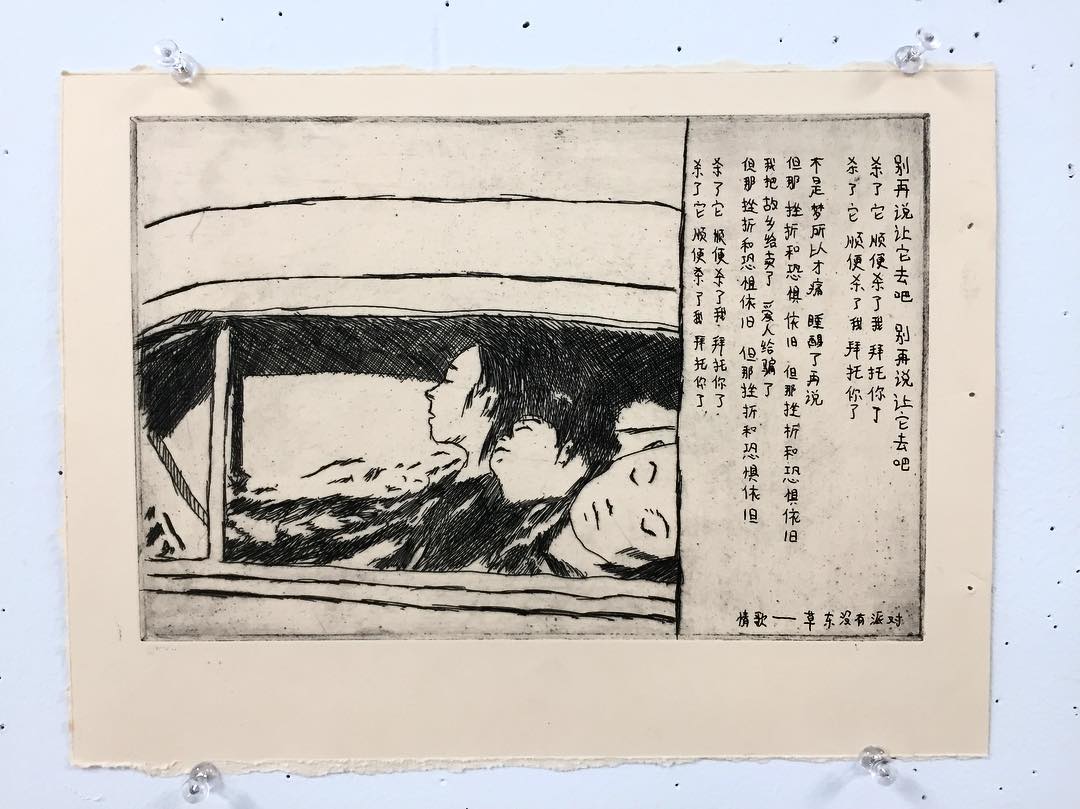 别再说让它去吧 别再说让它去吧
杀了它 顺便杀了我 拜托你了
杀了它 顺便杀了我 拜托你了
不是梦所以才痛 睡醒了再说
但那 挫折和恐惧 依旧 但那挫折和恐惧依旧
我把故乡给卖了 爱人给骗了
但那挫折和恐惧依旧 但那挫折和恐惧依旧
杀了它 顺便杀了我. 拜托你了.
杀了它 顺便杀了我 拜托你了.
情歌——草东没有派对